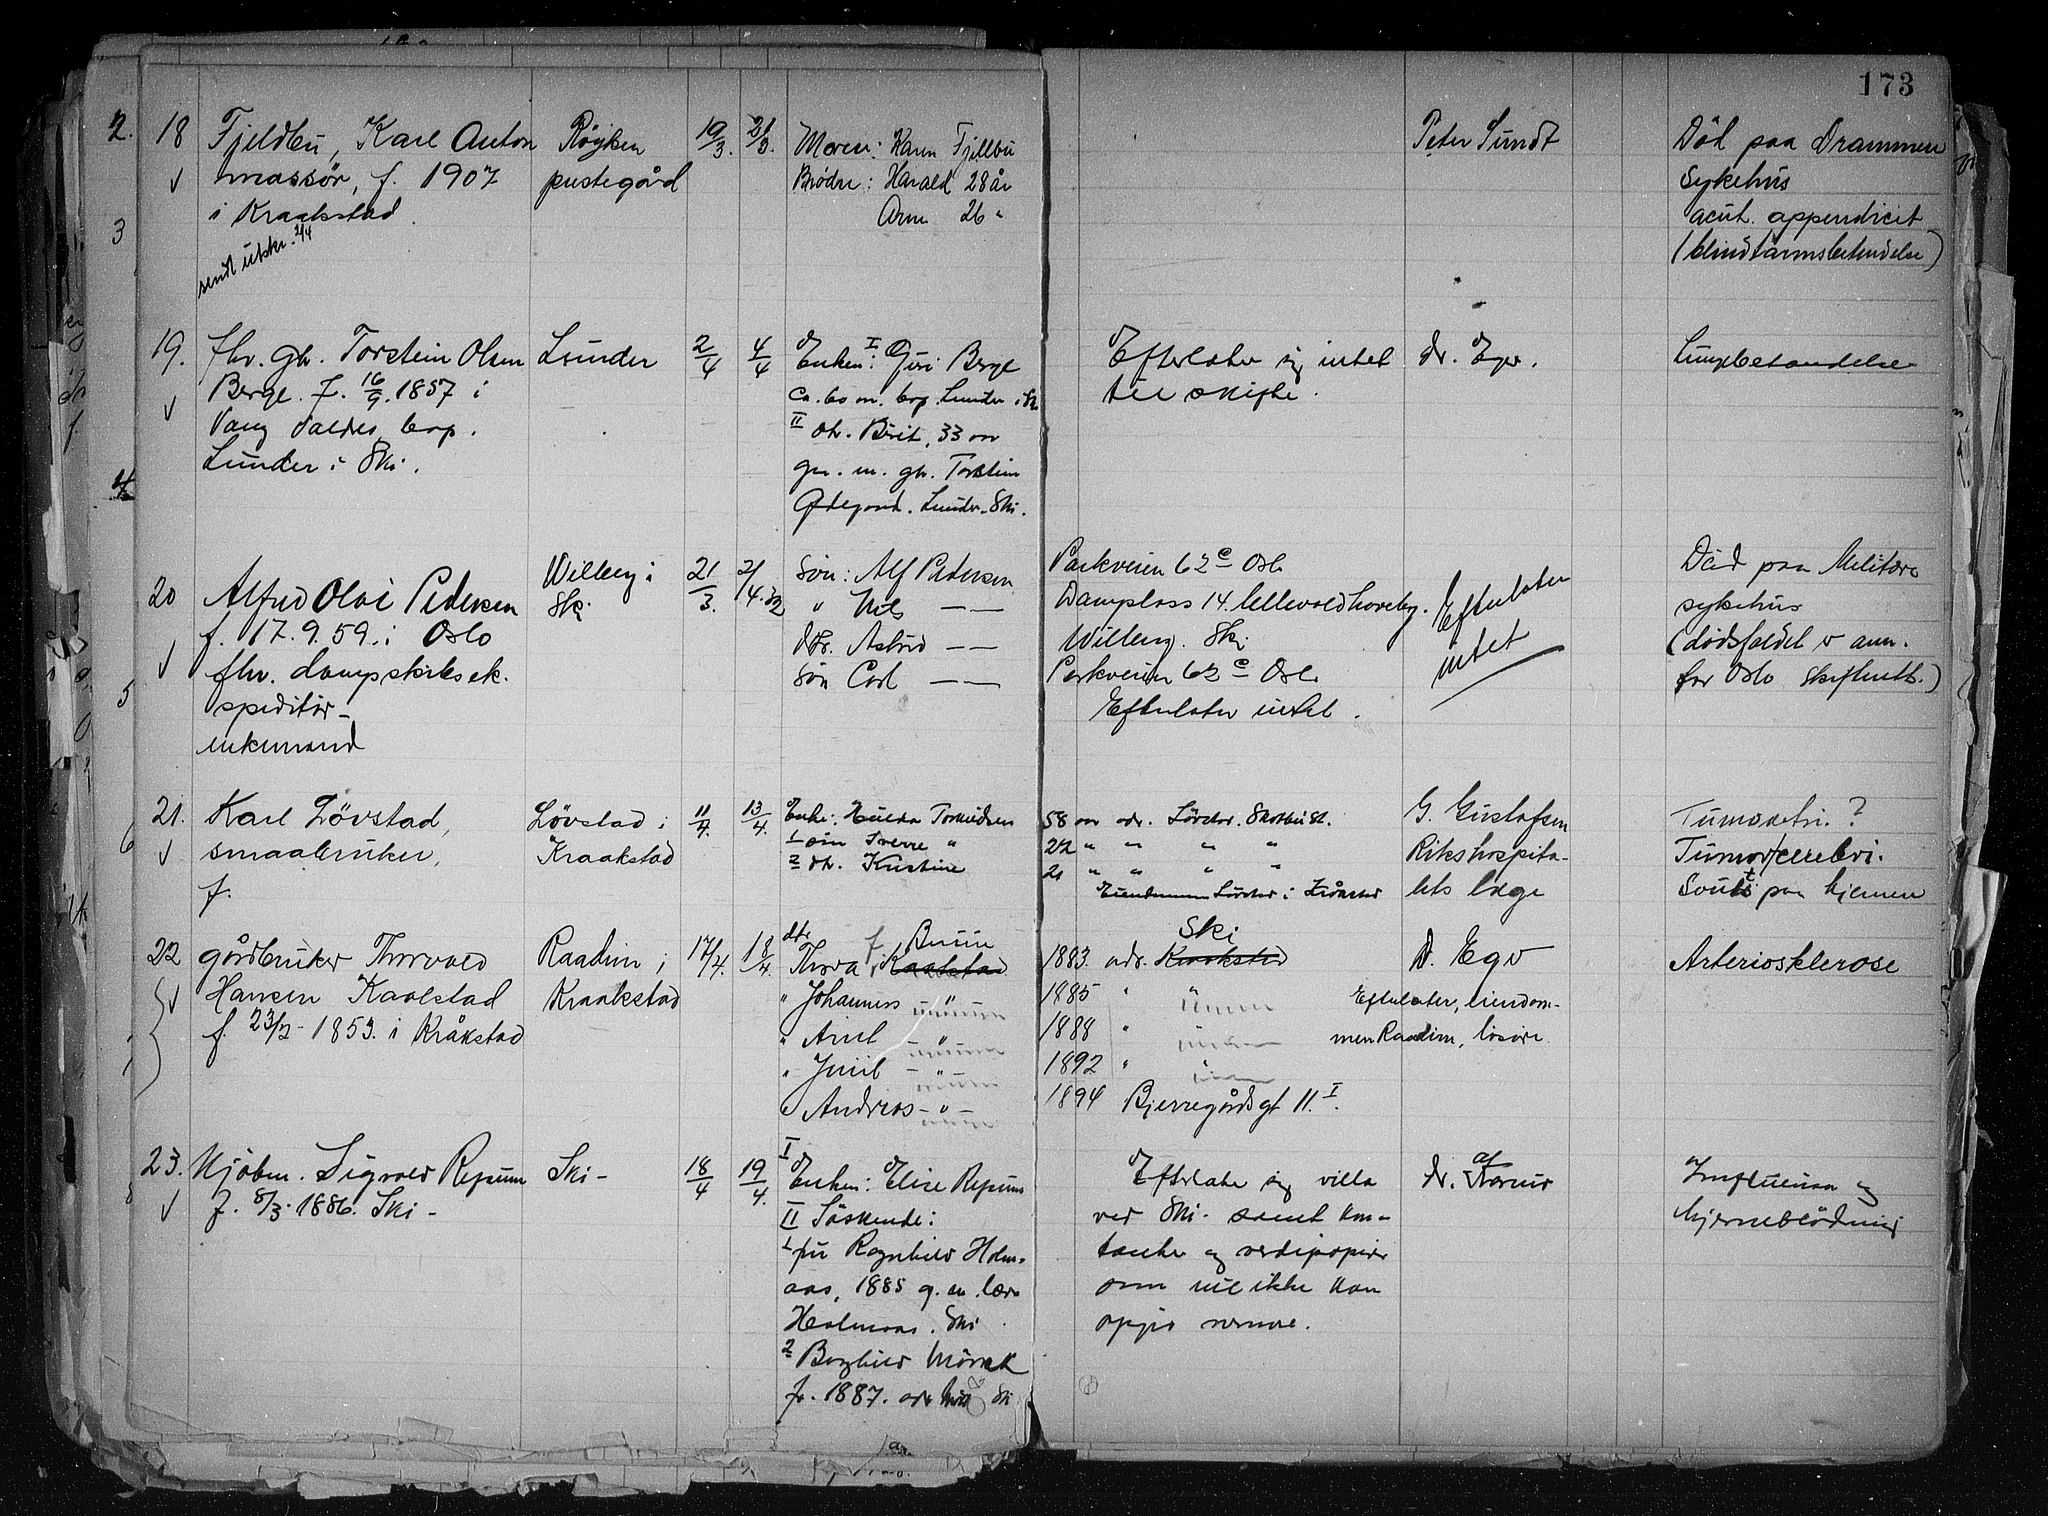 173
18
Fjeldbu, Karl Anton
massør, f. 1907
i Kraakstad
sendt utskr. 2/4
Røyken
prestegård
19/3.
21/3.
Moren: Karen Fjellbu
Brødre: Harald 28 år
Arne 26 "
Peter Sundt
Död paa Drammen
Sykehus
acut. appendicit
(blindtarmsbetendelse)
19.
fhv. gb. Torstein Olsen
Berge. f. 16/9. 1857 i
Vang Valdres, bop.
Lunder i Ski.
Lunder
2/4
4/4
I
Enken: Guri Berge
ca. 60 år. bop. Lunder i Ski
II dtr. Birit, 33 år
gm. m. gb. Torstein
Ødegaard. Lunder. Ski.
Efterlater sig intet
til skifte.
dr. Ege.
Lungebetændelse
20
Alfred Olai Pedersen
f. 17.9.59. i Oslo
fhv. dampskibsek.
speditør -
enkemand
Wilberg i
Ski
21/3.
2/4.32
Søn: Alf Pedersen
" Nils — —
dtr. Astrid — —
Søn Carl — —
Parkveien 62 c Oslo
Damplass 14. Ullevaal haveby.
Wilberg. Ski
Parkveien 62 c Oslo
Efterlater intet.
Efterlater
intet
Död paa Militære
sykehus
(dødsfaldet er anm.
for Oslo Skifterett.)
21.
Karl Lövstad,
smaabruker,
f.
Lövstad i
Kraakstad
11/4.
13/4.
Enke: Hulda Torkildsen
1 søn Sverre "
2 dtr. Kristine
58 aar adr. Lövstad. Skotbu St.
22 " " " "
21 " " " "
Eiendommen Lövstad i Kråkstad
G. Gustafsen
Rikshospita-
lets læge
Tumor cerebri.
Svulst paa hjernen
22
gårdbruker Thorvald
Hansen Kaalstad
f. 23/2 - 1853. i Kråkstad
Raadim i
Kraakstad
17/4.
18/4.
dtr f. Bruun
Thora Kaalstad
" Johannes — " —
" Arnt — " —
" Emil — " —
" Andreas — " —
Ski
1883. adr. Kraakstad
1885 " "
1888 "
1892 "
1894 Bjerregårdsgt 11. I.
D. Ege
Efterlater, eiendom-
men Raadim, løsøre.
Arteriosklerose
23.
Kjøbm. Sigvald Repsum
f. 8/3. 1886. Ski -
Ski -
18/4
19/4.
I
Enken: Elise Repsum
II Söskende:
1 fru Ragnhild Holm-
aas, 1885 g. m. lær.
Holmaas. Ski
2 Borghild Mörk
f. 1887. adr. Ski
Efterlater sig villa
ved Ski - samt kon-
tanter og verdipapirer
som vil ikke kan
opgis nærmere.
dr.
Influensa og
hjerneblödning